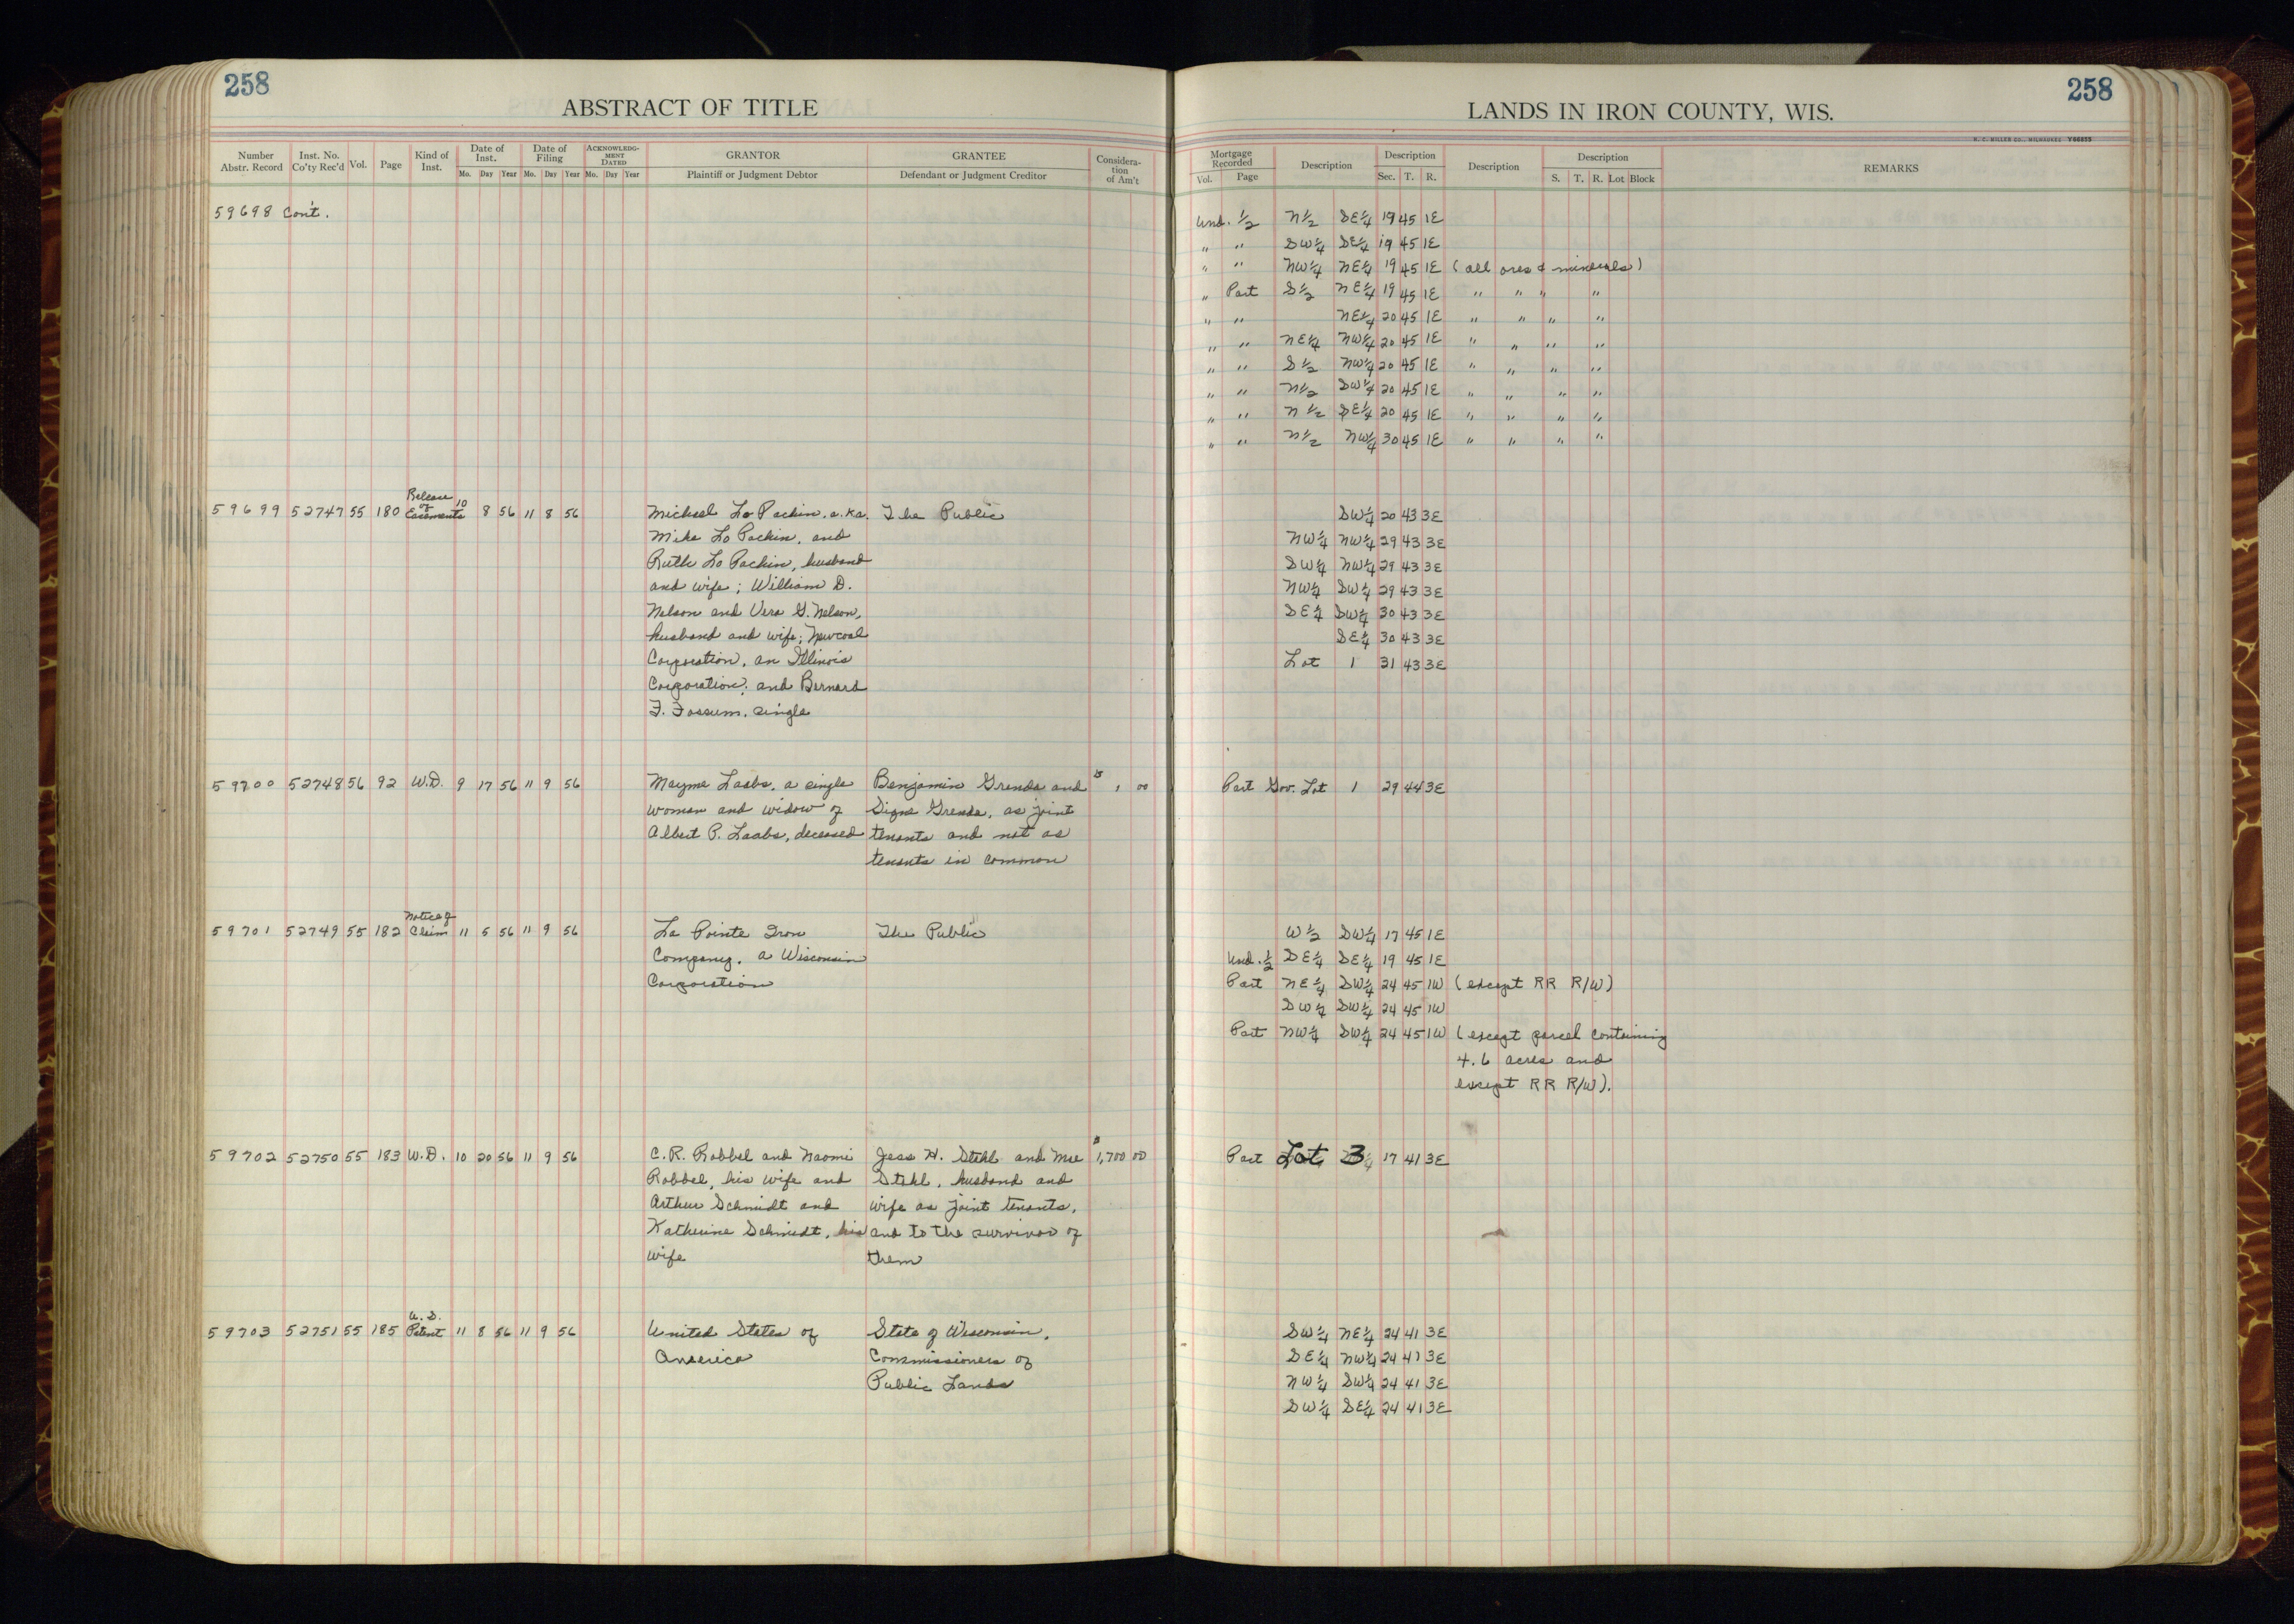 258
ABSTRACT OF TITLE
Number Abstr. Record
Inst. No. Co'ty Rec'd
Vol.
Page
Kind of Inst.
Date of Inst.
Mo. Day Year
Date of Filing
Mo. Day Year
ACKNOWLEDG-MENT DATED
Mo. Day Year
GRANTOR
Plaintiff or Judgment Debtor
GRANTEE
Defendant or Judgment Creditor
Considera-tion of Am't
258
LANDS IN IRON COUNTY, WIS.
H. C. MILLER CO., MILWAUKEE
Mortgage Recorded
Vol. Page
Description
Description
Sec. T. R.
Description
Description
S. T. R. Lot Block
REMARKS
59698 Con't.
Und. 1/2 N1/2 SE1/4 19 45 1E
" " SW1/4 SE1/4 19 45 1E
" " NW1/4 NE1/4 19 45 1E (all ores & minerals)
" Part S1/2 NE1/4 19 45 1E " " " "
" " NE1/4 20 45 1E " " " "
" " NE1/4 NW1/4 20 45 1E " " " "
" " S1/2 NW1/4 20 45 1E " " " "
" " N1/2 SW1/4 20 45 1E " " " "
" " N1/2 SE1/4 20 45 1E " " " "
" " N1/2 NW1/4 30 45 1E " " " "
59699 52747 55 180 Release of Easements 10 8 56 11 8 56
Michael Lo Pachin, a.k.a. The Public
Mike Lo Pachin, and
Ruth Lo Pachin, husband
and wife; William D.
Nelson and Vera G. Nelson,
husband and wife; Newcoal
Corporation, an Illinois
Corporation; and Bernard
F. Fossum, single
SW1/4 20 43 3E
NW1/4 NW1/4 29 43 3E
SW1/4 NW1/4 29 43 3E
NW1/4 SW1/4 29 43 3E
SE1/4 SW1/4 30 43 3E
SE1/4 30 43 3E
Lot 1 31 43 3E
59700 52748 56 92 W.D. 9 17 56 11 9 56
Mayme Laabs, a single Benjamin Grenda and $ 1 00
woman and widow of Signe Grenda, as joint
Albert P. Laabs, deceased tenants and not as
tenants in common
Part Gov. Lot 1 29 44 3E
59701 52749 55 182 Notice of Claim 11 5 56 11 9 56
La Pointe Iron The Public
Company, a Wisconsin
Corporation
W1/2 SW1/4 17 45 1E
Und. 1/2 SE1/4 SE1/4 19 45 1E
Part NE1/4 SW1/4 24 45 1W (except RR R/W)
SW1/4 SW1/4 24 45 1W
Part NW1/4 SW1/4 24 45 1W (except parcel containing
4.6 acres and
except RR R/W).
59702 52750 55 183 W.D. 10 20 56 11 9 56
C. R. Robbel and Naomi Jess H. Stehl and Mae $ 1,700 00
Robbel, his wife and Stehl, husband and
Arthur Schmidt and wife as joint tenants,
Katherine Schmidt, his and to the survivor of
wife them
Part Lot 3 17 41 3E
59703 52751 55 185 U.S. Patent 11 8 56 11 9 56
United States of State of Wisconsin,
America Commissioners of
Public Lands
SW1/4 NE1/4 24 41 3E
SE1/4 NW1/4 24 41 3E
NW1/4 SW1/4 24 41 3E
SW1/4 SE1/4 24 41 3E